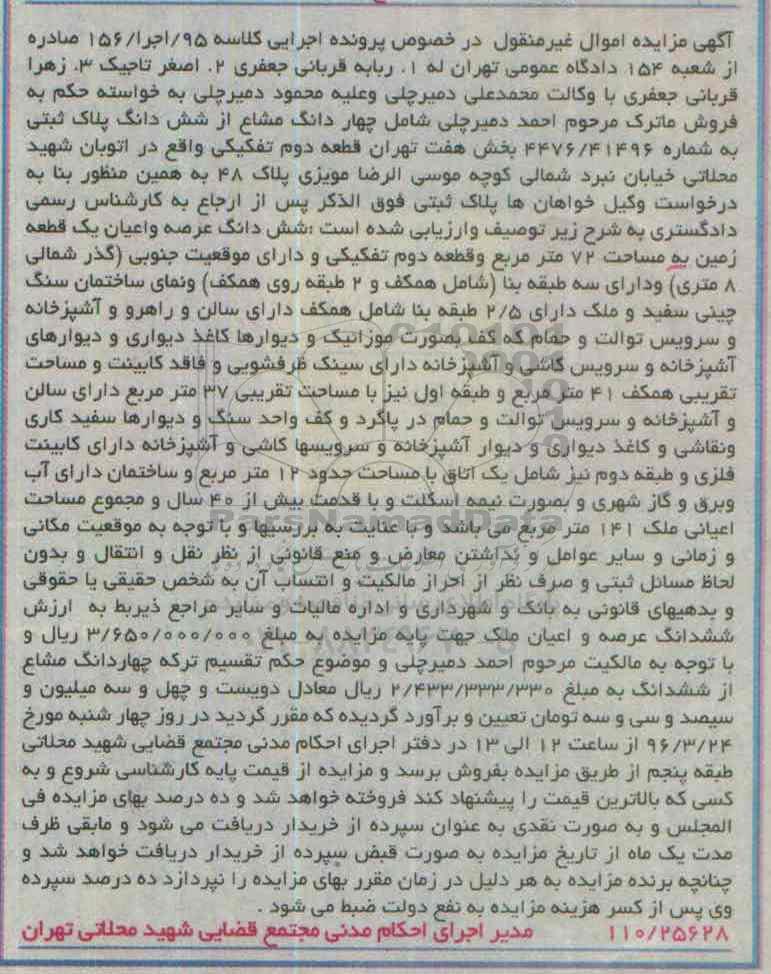 آگهی مزایده اموال غیرمنقول در خصوص پرونده اجرایی کلاسه ۹۵/اجرا/۱۵۶ صادره
از شعبه ۱۵۴ دادگاه عمومی تهران له ۱. ربابه قربانی جعفری ۲. اصغر تاجیک ۳. زهرا
قربانی جعفری با وکالت محمدعلی دمیرچلی وعلیه محمود دمیرچلی به خواسته حکم به
فروش ماترک مرحوم احمد دمیرچلی شامل چهار دانگ مشاع از شش دانگ پلاک ثبتی
به شماره ۴۴۷۶/۴۱۴۹۶ بخش هفت تهران قطعه دوم تفکیکی واقع در اتوبان شهید
محلاتی خیابان نبرد شمالی کوچه موسی الرضا مویزی پلاک ۴۸ به همین منظور بنا به
درخواست وکیل خواهان ها پلاک ثبتی فوق الذکر پس از ارجاع به کارشناس رسمی
دادگستری به شرح زیر توصیف وارزیابی شده است :شش دانگ عرصه واعیان یک قطعه
زمین به مساحت ۷۲ متر مربع وقطعه دوم تفکیکی و دارای موقعیت جنوبی (گذر شمالی
۸ متری) ودارای سه طبقه بنا (شامل همکف و ۲ طبقه روی همکف) ونمای ساختمان سنگ
چینی سفید و ملک دارای ۲/۵ طبقه بنا شامل همکف دارای سالن و راهرو و آشپزخانه
و سرویس توالت و حمام که کف بصورت موزائیک و دیوارها کاغذ دیواری و دیوارهای
آشپزخانه و سرویس کاشی و آشپزخانه دارای سینک ظرفشویی و فاقد کابینت و مساحت
تقریبی همکف ۴۱ متر مربع و طبقه اول نیز با مساحت تقریبی ۳۷ متر مربع دارای سالن
و آشپزخانه و سرویس توالت و حمام در پاگرد و کف واحد سنگ و دیوارها سفید کاری
ونقاشی و کاغذ دیواری و دیوار آشپزخانه و سرویسها کاشی و آشپزخانه دارای کابینت
فلزی و طبقه دوم نیز شامل یک اتاق با مساحت حدود ۱۲ متر مربع و ساختمان دارای آب
وبرق و گاز شهری و بصورت نیمه اسکلت و با قدمت بیش از ۴۰ سال و مجموع مساحت
اعیانی ملک ۱۴۱ متر مربع می باشد و با عنایت به بررسیها و با توجه به موقعیت مکانی
و زمانی و سایر عوامل و نداشتن معارض و منع قانونی از نظر نقل و انتقال و بدون
لحاظ مسائل ثبتی و صرف نظر از احراز مالکیت و انتساب آن به شخص حقیقی یا حقوقی
و بدهیهای قانونی به بانک و شهرداری و اداره مالیات و سایر مراجع ذیربط به ارزش
ششدانگ عرصه و اعیان ملک جهت پایه مزایده به مبلغ ۳/۶۵۰/۰۰۰/۰۰۰ ریال و
با توجه به مالکیت مرحوم احمد دمیرچلی و موضوع حکم تقسیم ترکه چهاردانگ مشاع
از ششدانگ به مبلغ ۲/۴۳۳/۳۳۳/۳۳۰ ریال معادل دویست و چهل و سه میلیون و
سیصد و سی و سه تومان تعیین و برآورد گردیده که مقرر گردید در روز چهار شنبه مورخ
۹۶/۳/۲۴ از ساعت ۱۲ الی ۱۳ در دفتر اجرای احکام مدنی مجتمع قضایی شهید محلاتی
طبقه پنجم از طریق مزایده بفروش برسد و مزایده از قیمت پایه کارشناسی شروع و به
کسی که بالاترین قیمت را پیشنهاد کند فروخته خواهد شد و ده درصد بهای مزایده فی
المجلس و به صورت نقدی به عنوان سپرده از خریدار دریافت می شود و مابقی ظرف
مدت یک ماه از تاریخ مزایده به صورت قبض سپرده از خریدار دریافت خواهد شد و
چنانچه برنده مزایده به هر دلیل در زمان مقرر بهای مزایده را نپردازد ده درصد سپرده
وی پس از کسر هزینه مزایده به نفع دولت ضبط می شود .
۱۱۰/۲۵۶۲۸ مدیر اجرای احکام مدنی مجتمع قضایی شهید محلاتی تهران
ParsNamadData